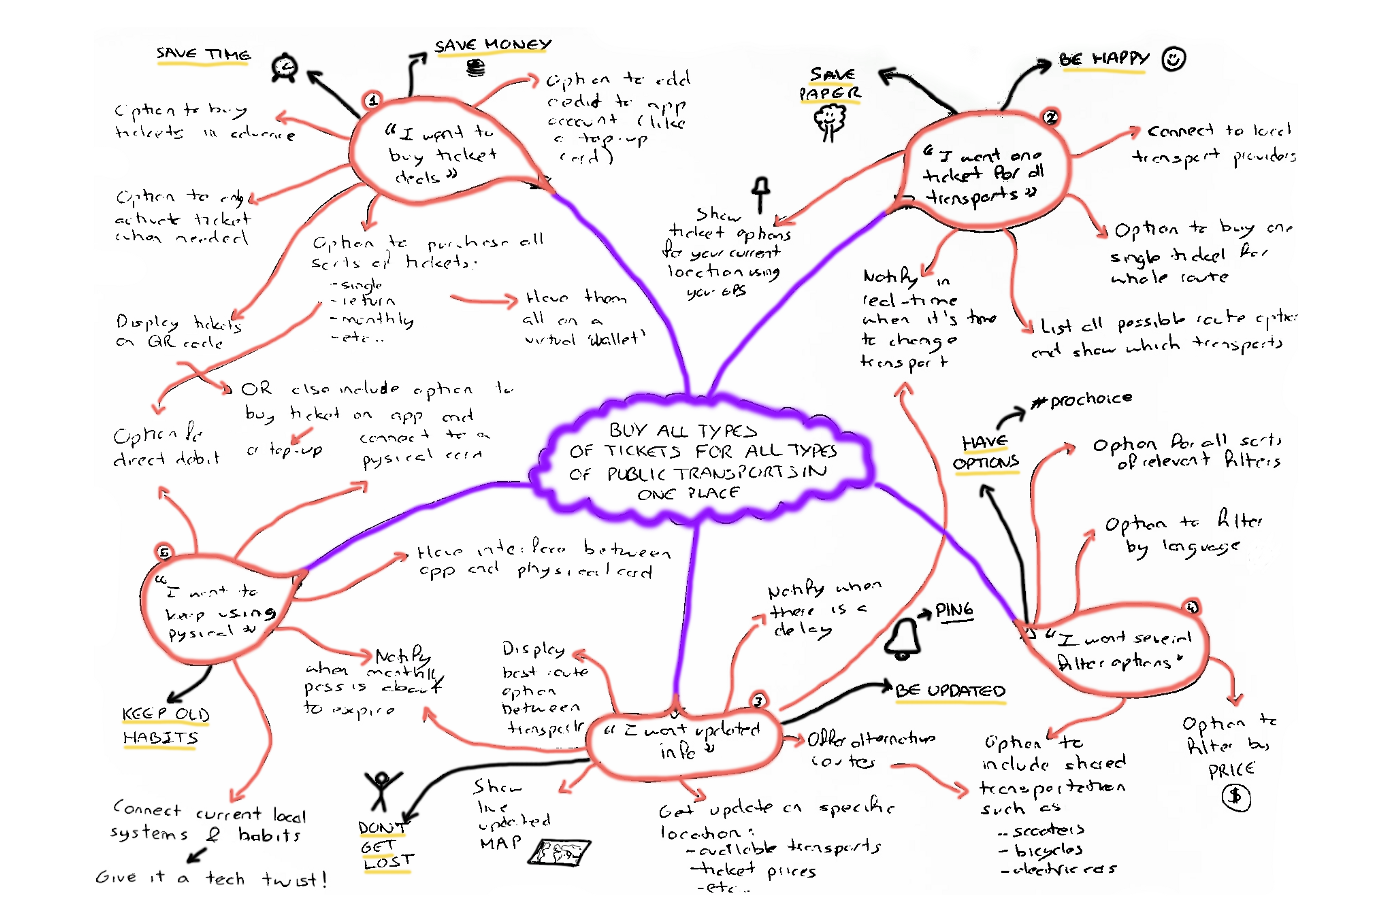 SAVE TIME
SAVE MONEY
Option to buy
tickets in advance
Option to only
activate ticket
when needed
Display tickets
on QR code
1
"I want to
buy ticket
deals"
Option to add
credit to app
account (like
a top-up
card)
Option to purchase all
sorts of tickets:
- single
- return
- monthly
- etc..
Have them
all on a
virtual 'wallet'
SAVE
PAPER
BE HAPPY
2
"I want one
ticket for all
transports"
Connect to local
transport providers
Show
ticket options
for your current
location using
your GPS
Option to buy one
single ticket for
whole route
Notify in
real-time
when it's time
to change
transport
List all possible route options
and show which transports
OR also include option to
buy ticket on app and
a top-up
connect to a
pysical card
Option for
direct debit
BUY ALL TYPES
OF TICKETS FOR ALL TYPES
OF PUBLIC TRANSPORTS IN
ONE PLACE
#prochoice
HAVE
OPTIONS
Option for all sorts
of relevant filters
Option to filter
by language
4
"I want several
filter options"
Option to
filter by
PRICE
$
Option to
include shared
transportation
such as
- scooters
- bicycles
- electric cars
5
"I want to
keep using
pysical"
Have interface between
app and physical card
KEEP OLD
HABITS
Notify
when monthly
pass is about
to expire
Connect current local
systems & habits
Give it a tech twist!
Display
best route
option
between
transports
Notify when
there is a
delay
PING
BE UPDATED
3
"I want updated
info"
Offer alternative
routes
DON'T
GET
LOST
Show
live
updated
MAP
Get update on specific
location:
- available transports
- ticket prices
- etc..